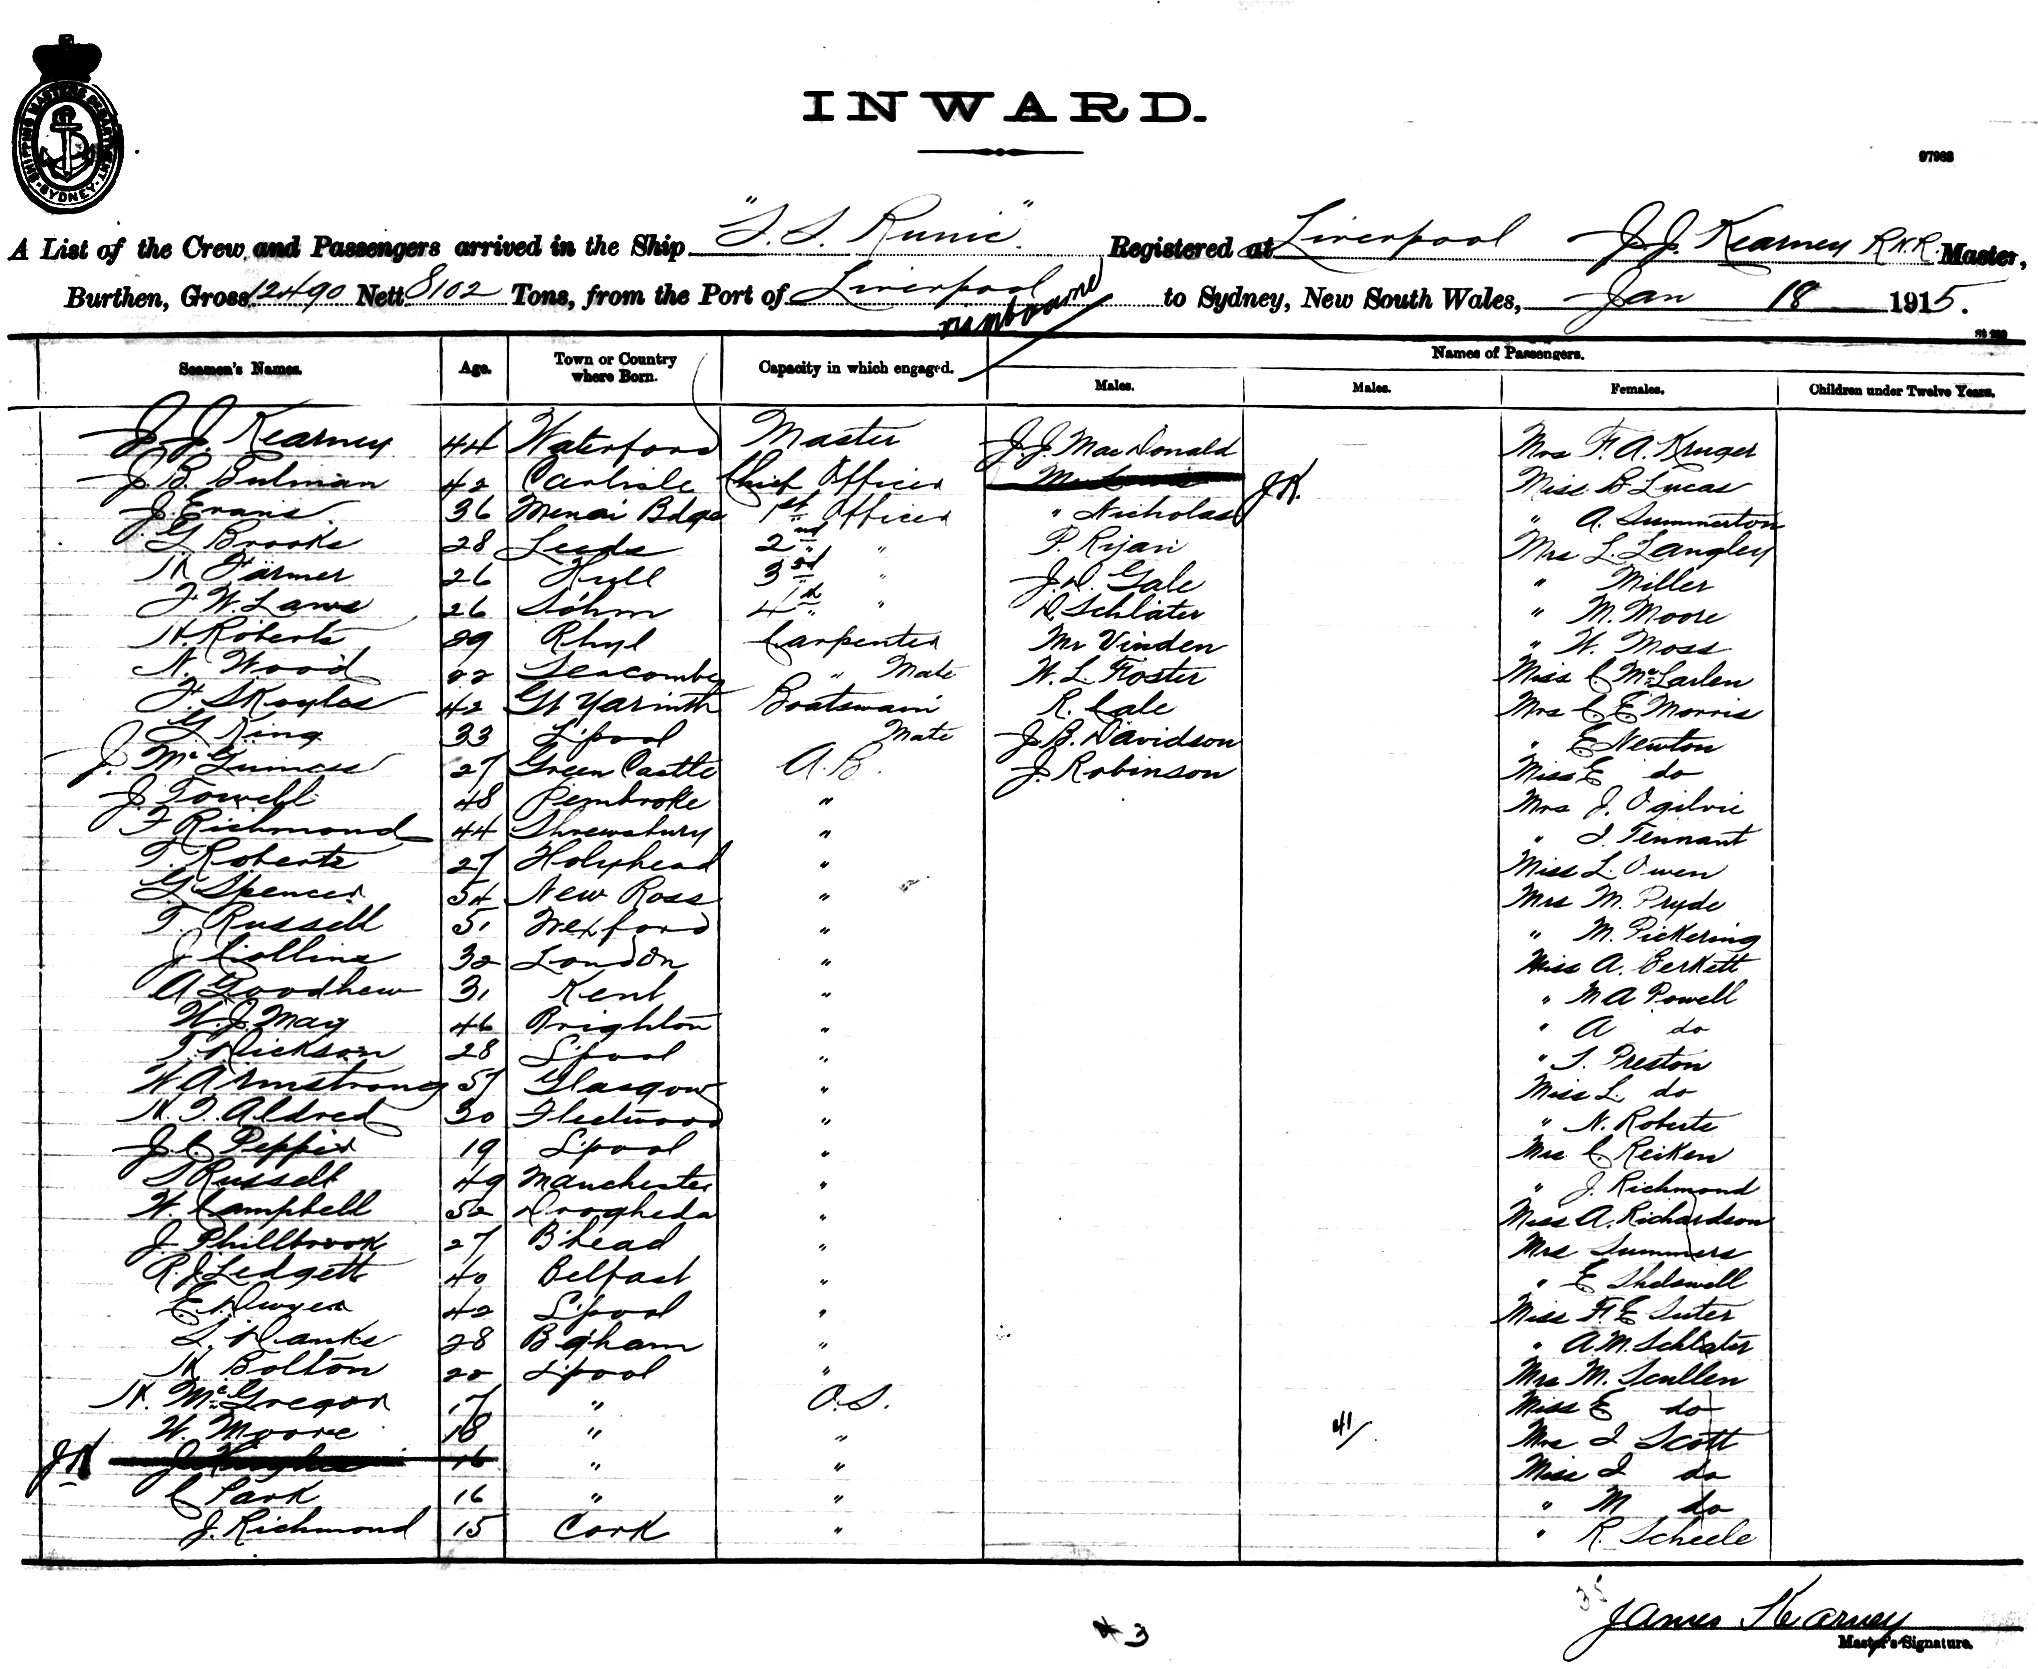 SHIPPING MASTERS DEPARTMENT
SYDNEY
INWARD.
97983
A List of the Crew and Passengers arrived in the Ship "S.S. Runic" Registered at Liverpool J.J. Kearney R.N.R. Master,
Burthen, Gross 12490 Nett 8102 Tons, from the Port of Liverpool to Sydney, New South Wales, Jan 18 1915.
Seamen's Names. Age. Town or Country where Born. Capacity in which engaged. Names of Passengers.
Males. Males. Females. Children under Twelve Years.
J.J. Kearney 44 Waterford Master J.J. MacDonald Mrs F.A. Kruger
J.B. Bulman 42 Carlisle Chief Officer JK. Miss B Lucas
J. Evans 36 Menai Bdge 1st Officer " Nicholas " A. Summerton
G Brooks 28 Leeds 2nd " P. Ryan Mrs L. Langley
H Farmer 26 Hull 3rd " J.D. Gale " Miller
F.W. Laws 26 Sohm 4th " D. Schlater " M. Moore
H. Roberts 29 Rhyl Carpenter Mr Vinden " W. Moss
N. Wood 22 Seacombe " Mate W.L. Foster Miss C McLarlen
F. Skoyles 42 Gt Yarmth Boatswain R. Cale Mrs C E Morris
G King 33 L'pool Mate J.B. Davidson " E Newton
J. McGuiness 27 Green Castle A.B. J. Robinson Miss E do
J. Towell 48 Pembroke " Mrs J. Ogilvie
F Richmond 44 Shrewsbury " " I. Tennant
T. Roberts 27 Holyhead " Miss L. Owen
G Spencer 54 New Ross " Mrs M. Pryde
T. Russell 51 Wexford " " M. Pickering
J Collins 32 London " Miss A. Perkett
A Goodhew 31 Kent " " M A Powell
W.J. May 46 Brighton " " A do
T. Dickson 28 L'pool " " S. Preston
W Armstrong 57 Glasgow " Miss L. do
H.T. Aldred 30 Fleetwood " " N. Roberts
J.C. Pepper 19 L'pool " Mrs C. Reiken
S Russell 49 Manchester " " J. Richmond
W. Campbell 52 Drogheda " Miss A. Richardson
J Phillbrook 27 B'head " Mrs Summers
R.J. Ledgett 40 Belfast " " E Shdewell
E. Dwyer 42 L'pool " Miss F. E Suter
S. Danks 28 B'gham " " A.M. Schlater
H Bolton 20 L'pool " Mrs M. Scullen
H. McGregor 17 " O.S. Miss E do
W. Moore 18 " " 41/ Mrs I Scott
JK 16 " " Miss I do
C Park 16 " " " M do
J. Richmond 15 Cork " " R. Scheele
35
James Kearney
3
Master's Signature.